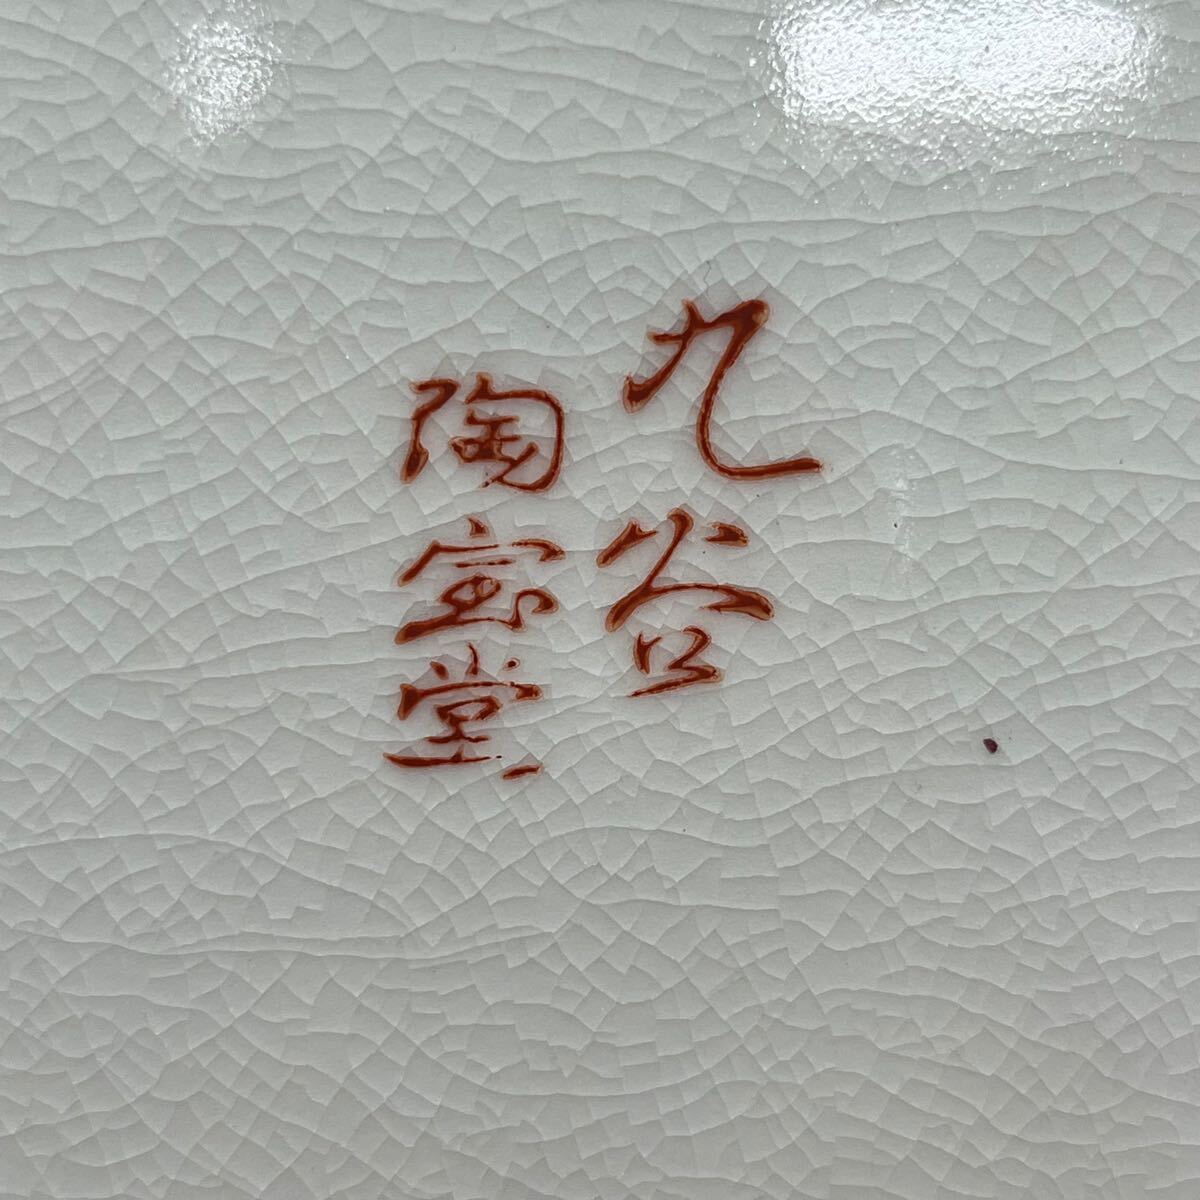 九谷
陶宝堂